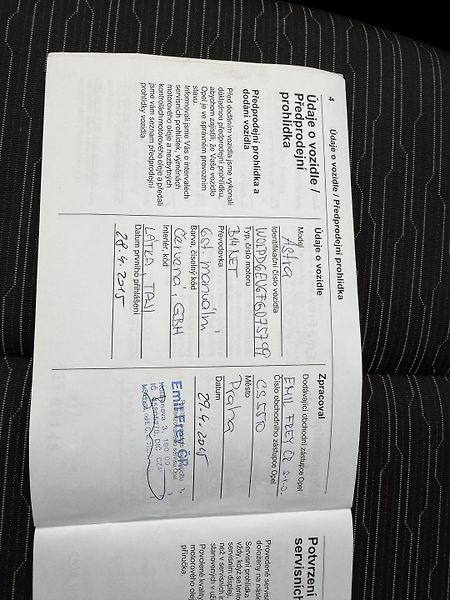 4
Údaje o vozidle / Předprodejní prohlídka
Údaje o vozidle /
Předprodejní
prohlídka
Předprodejní prohlídka a
dodání vozidla
Před dodáním vozidla jsme vykonali
důkladnou předprodejní prohlídku,
abychom zajistili, že Vaše vozidlo
Opel je ve správném provozním
stavu.
Informovali jsme Vás o intervalech
servisních prohlídek, výměnách
motorového oleje a nezbytných
kontrolách motorového oleje a předali
jsme vám seznam předprodejní
prohlídky vozidla.
Údaje o vozidle
Astra
Model
Identifikační číslo vozidla
Typ, číslo motoru
B14NET
Převodovka
6st. manuální
Barva, číselný kód
Červená, GBH
Interiér, kód
LÁTKA, TAAJ
Datum prvního přihlášení
28.4.2015
Zpracoval
Dodávající obchodní zástupce Opel
EMIL FREY ČR s.r.o.
Číslo obchodního zástupce Opel
CS550
Město
Praha
Datum
29.4.2015
Emil Frey ČR
Potvrzení
servisních
Provedené servis
doloženy na násle
Servisní prohlídka
vždy, když se tento
servisním displeji,
než v servisních
stanovených v
Povolené kvality
motorového oleje
příručka.